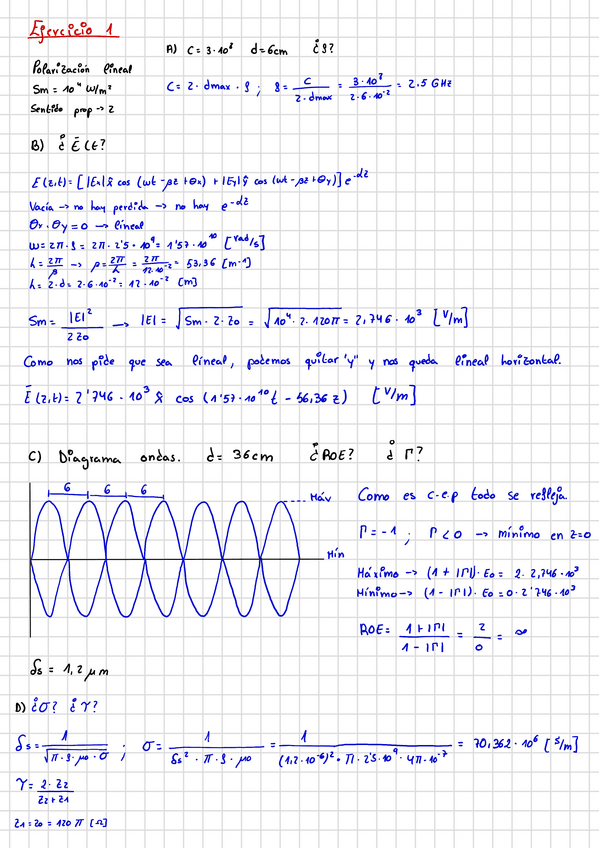 Ejercicio 1
A) C = 3·10⁸ d = 6cm ¿f?
Polarización lineal
Sm = 10⁴ W/m²
Sentido prop -> z
C = 2 · dmax · f ; f = C / 2·dmax = 3·10⁸ / 2·6·10⁻² = 2,5 GHz
B) ¿Ē(t?
E(z,t) = [|Ex| x̂ cos (ωt - βz + θx) + |Ey| ŷ cos (ωt - βz + θy)] e^-αz
Vacía -> no hay perdida -> no hay e^-αz
θx · θy = 0 -> lineal
ω = 2π · f = 2π · 2'5 · 10⁹ = 1'57 · 10¹⁰ [rad/s]
λ = 2π/β -> β = 2π/λ = 2π / 12·10⁻² = 53,36 [m⁻¹]
λ = 2·d = 2·6·10⁻² = 12·10⁻² [m]
Sm = |E|² / 2 Z0 -> |E| = √(Sm · 2 · Z0) = √(10⁴ · 2 · 120π) = 2,746 · 10³ [V/m]
Como nos pide que sea lineal, podemos quitar "y" y nos queda lineal horizontal.
Ē(z,t) = 2'746 · 10³ x̂ cos (1'57·10¹⁰t - 56,36 z) [V/m]
C) Diagrama ondas. d = 36cm ¿ROE? ¿Γ?
6 6 6
Máv
Mín
Como es c.e.p todo se refleja.
Γ = -1 ; Γ < 0 -> mínimo en z=0
Máximo -> (1 + |Γ|) · E0 = 2 · 2,746 · 10³
Mínimo -> (1 - |Γ|) · E0 = 0 · 2'746 · 10³
ROE = 1 + |Γ| / 1 - |Γ| = 2/0 = ∞
δs = 1,2 μm
D) ¿σ? ¿γ?
δs = 1 / √(π · f · μ0 · σ) ; σ = 1 / δs² · π · f · μ0 = 1 / (1,2·10⁻⁶)² · π · 2'5·10⁹ · 4π·10⁻⁷ = 70,362 · 10⁶ [S/m]
γ = 2 · Z2 / Z2 + Z1
Z1 = Z0 = 120 π [Ω]